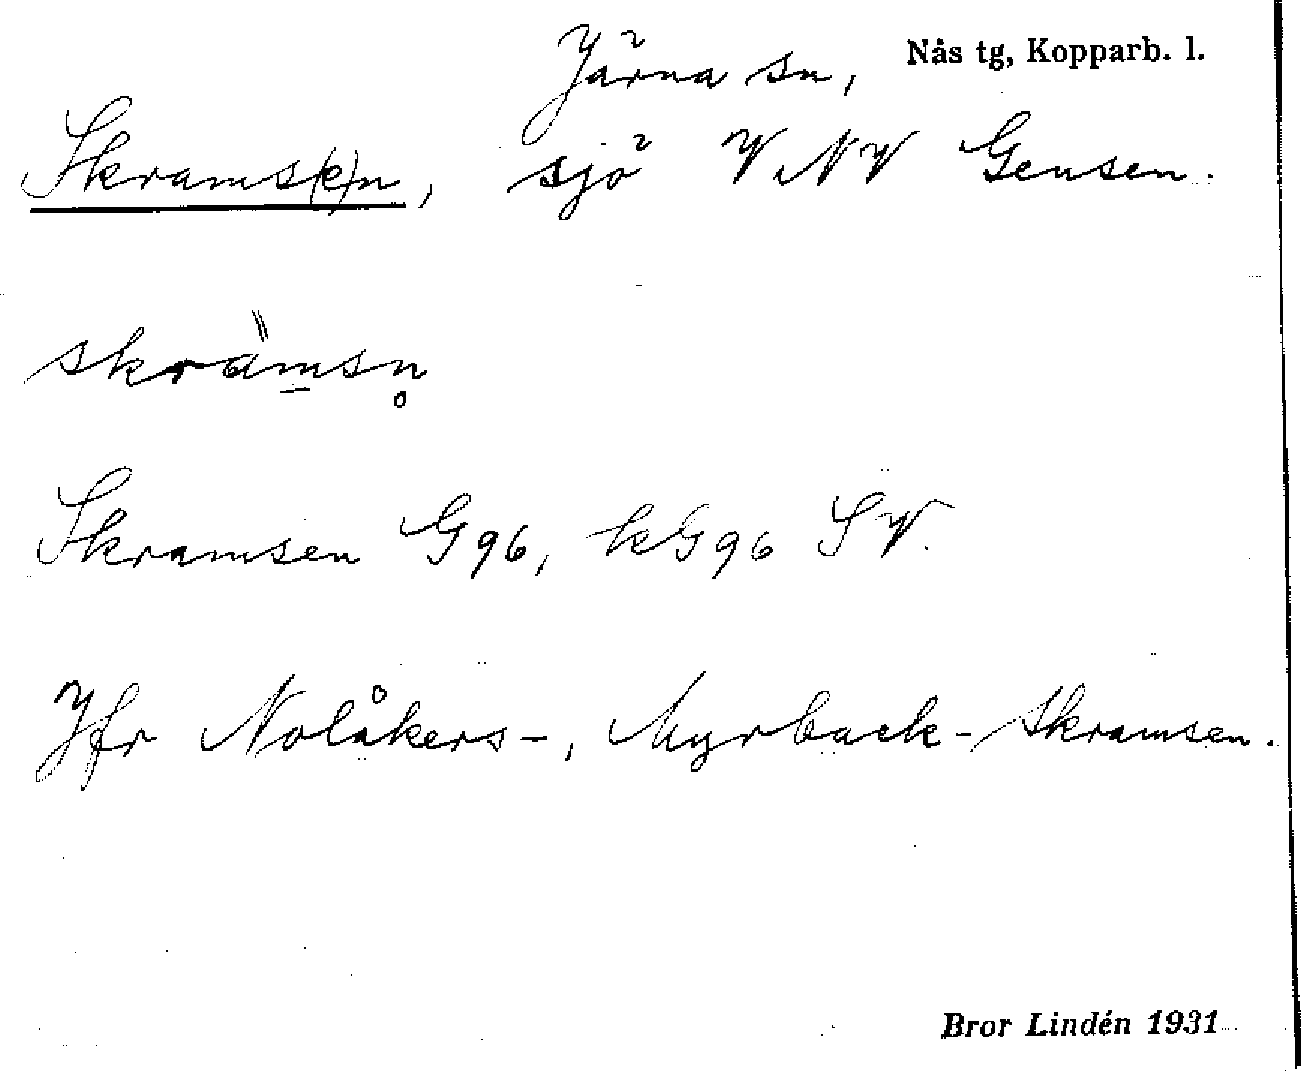 Järna sn, Nås tg, Kopparb. l.
Skrams(e)n, sjö V. NV Gensen.
skràmsn̥
Skramsen G96, kG96 SV.
Jfr Nolåkers-, Myrback-Skramsen.
Bror Lindén 1931